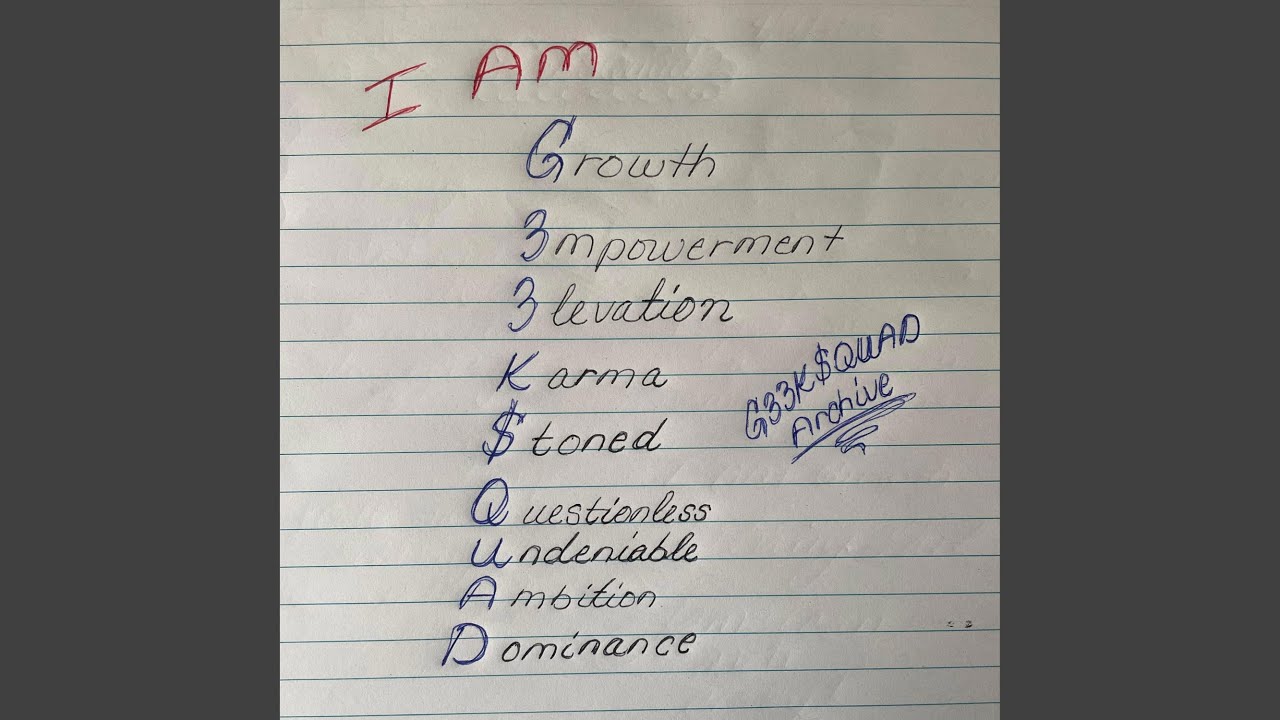 I AM
Growth
3mpowerment
3levation
Karma
$toned
Questionless
Undeniable
Ambition
Dominance
G33K$QUAD
Archive